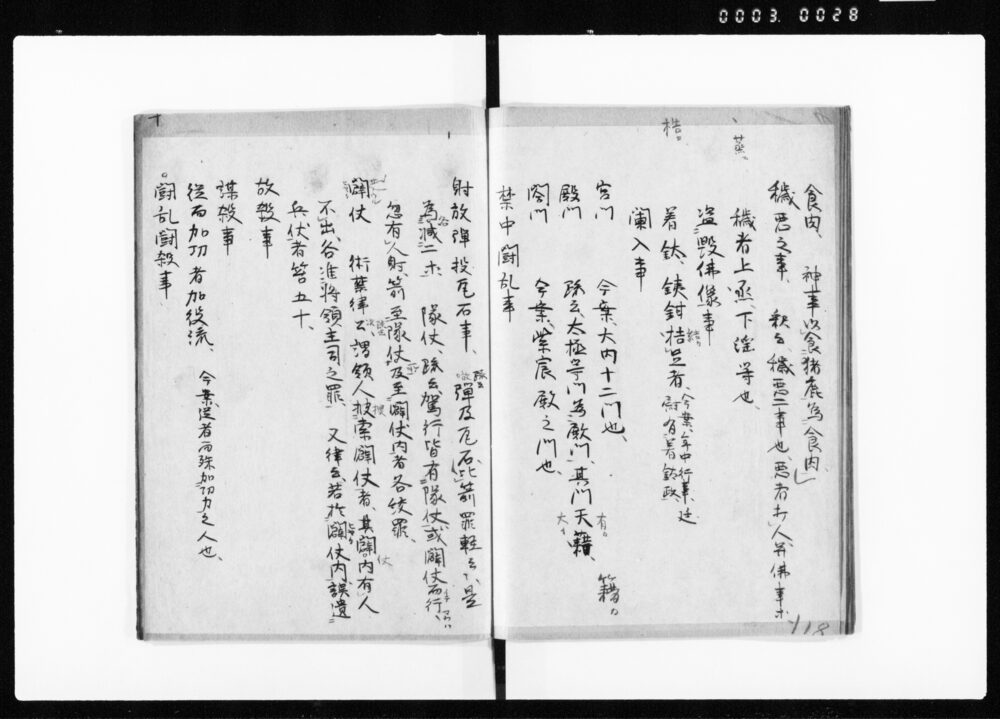 0003. 0028
食肉、　神事以食猪鹿為食肉、
穢悪之事、　釈云、穢悪二事也、悪者打人并佛事等
穢者上烝、下淫等也、
盗毀佛像事
着鈦、鉄鉗桔足者、今案、年中行事、
闌入事
宮門　今案、大内十二門也、
殿門　疏云、太極等門為殿門、其門无籍、
閤門　今案、紫宸殿之門也、
禁中闘乱事
射放弾投瓦石事、　弾及瓦石、比箭罪軽云々、是
為減二等　隊仗、疏云、駕行皆有隊仗、或闢仗而行、
忽有人射箭至隊仗及至闢仗内者各絞罪、
闢仗　衛禁律云、謂領人披索闢仗者、其闢内有人
不出、谷准将領主司之罪、　又律云、若於闢仗内誤遺
兵仗者笞五十、
故殺事
謀殺事
従而加功者加役流、　今案、従者而殊加切力之人也、
闘乱闘殺事
118